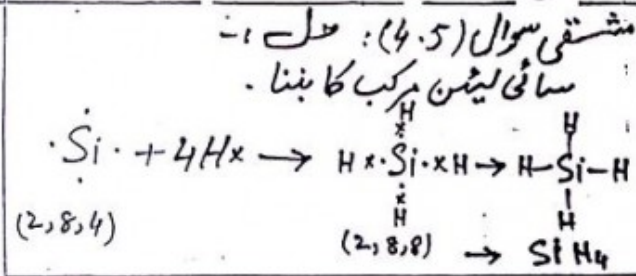 مشقی سوال (4.5): حل :-
سائی لیئن مرکب کا بننا .
·Si· + 4Hx → H x·Si·x H → H-Si-H
H
H
H
H
(2,8,4)
(2,8,8) → SiH4